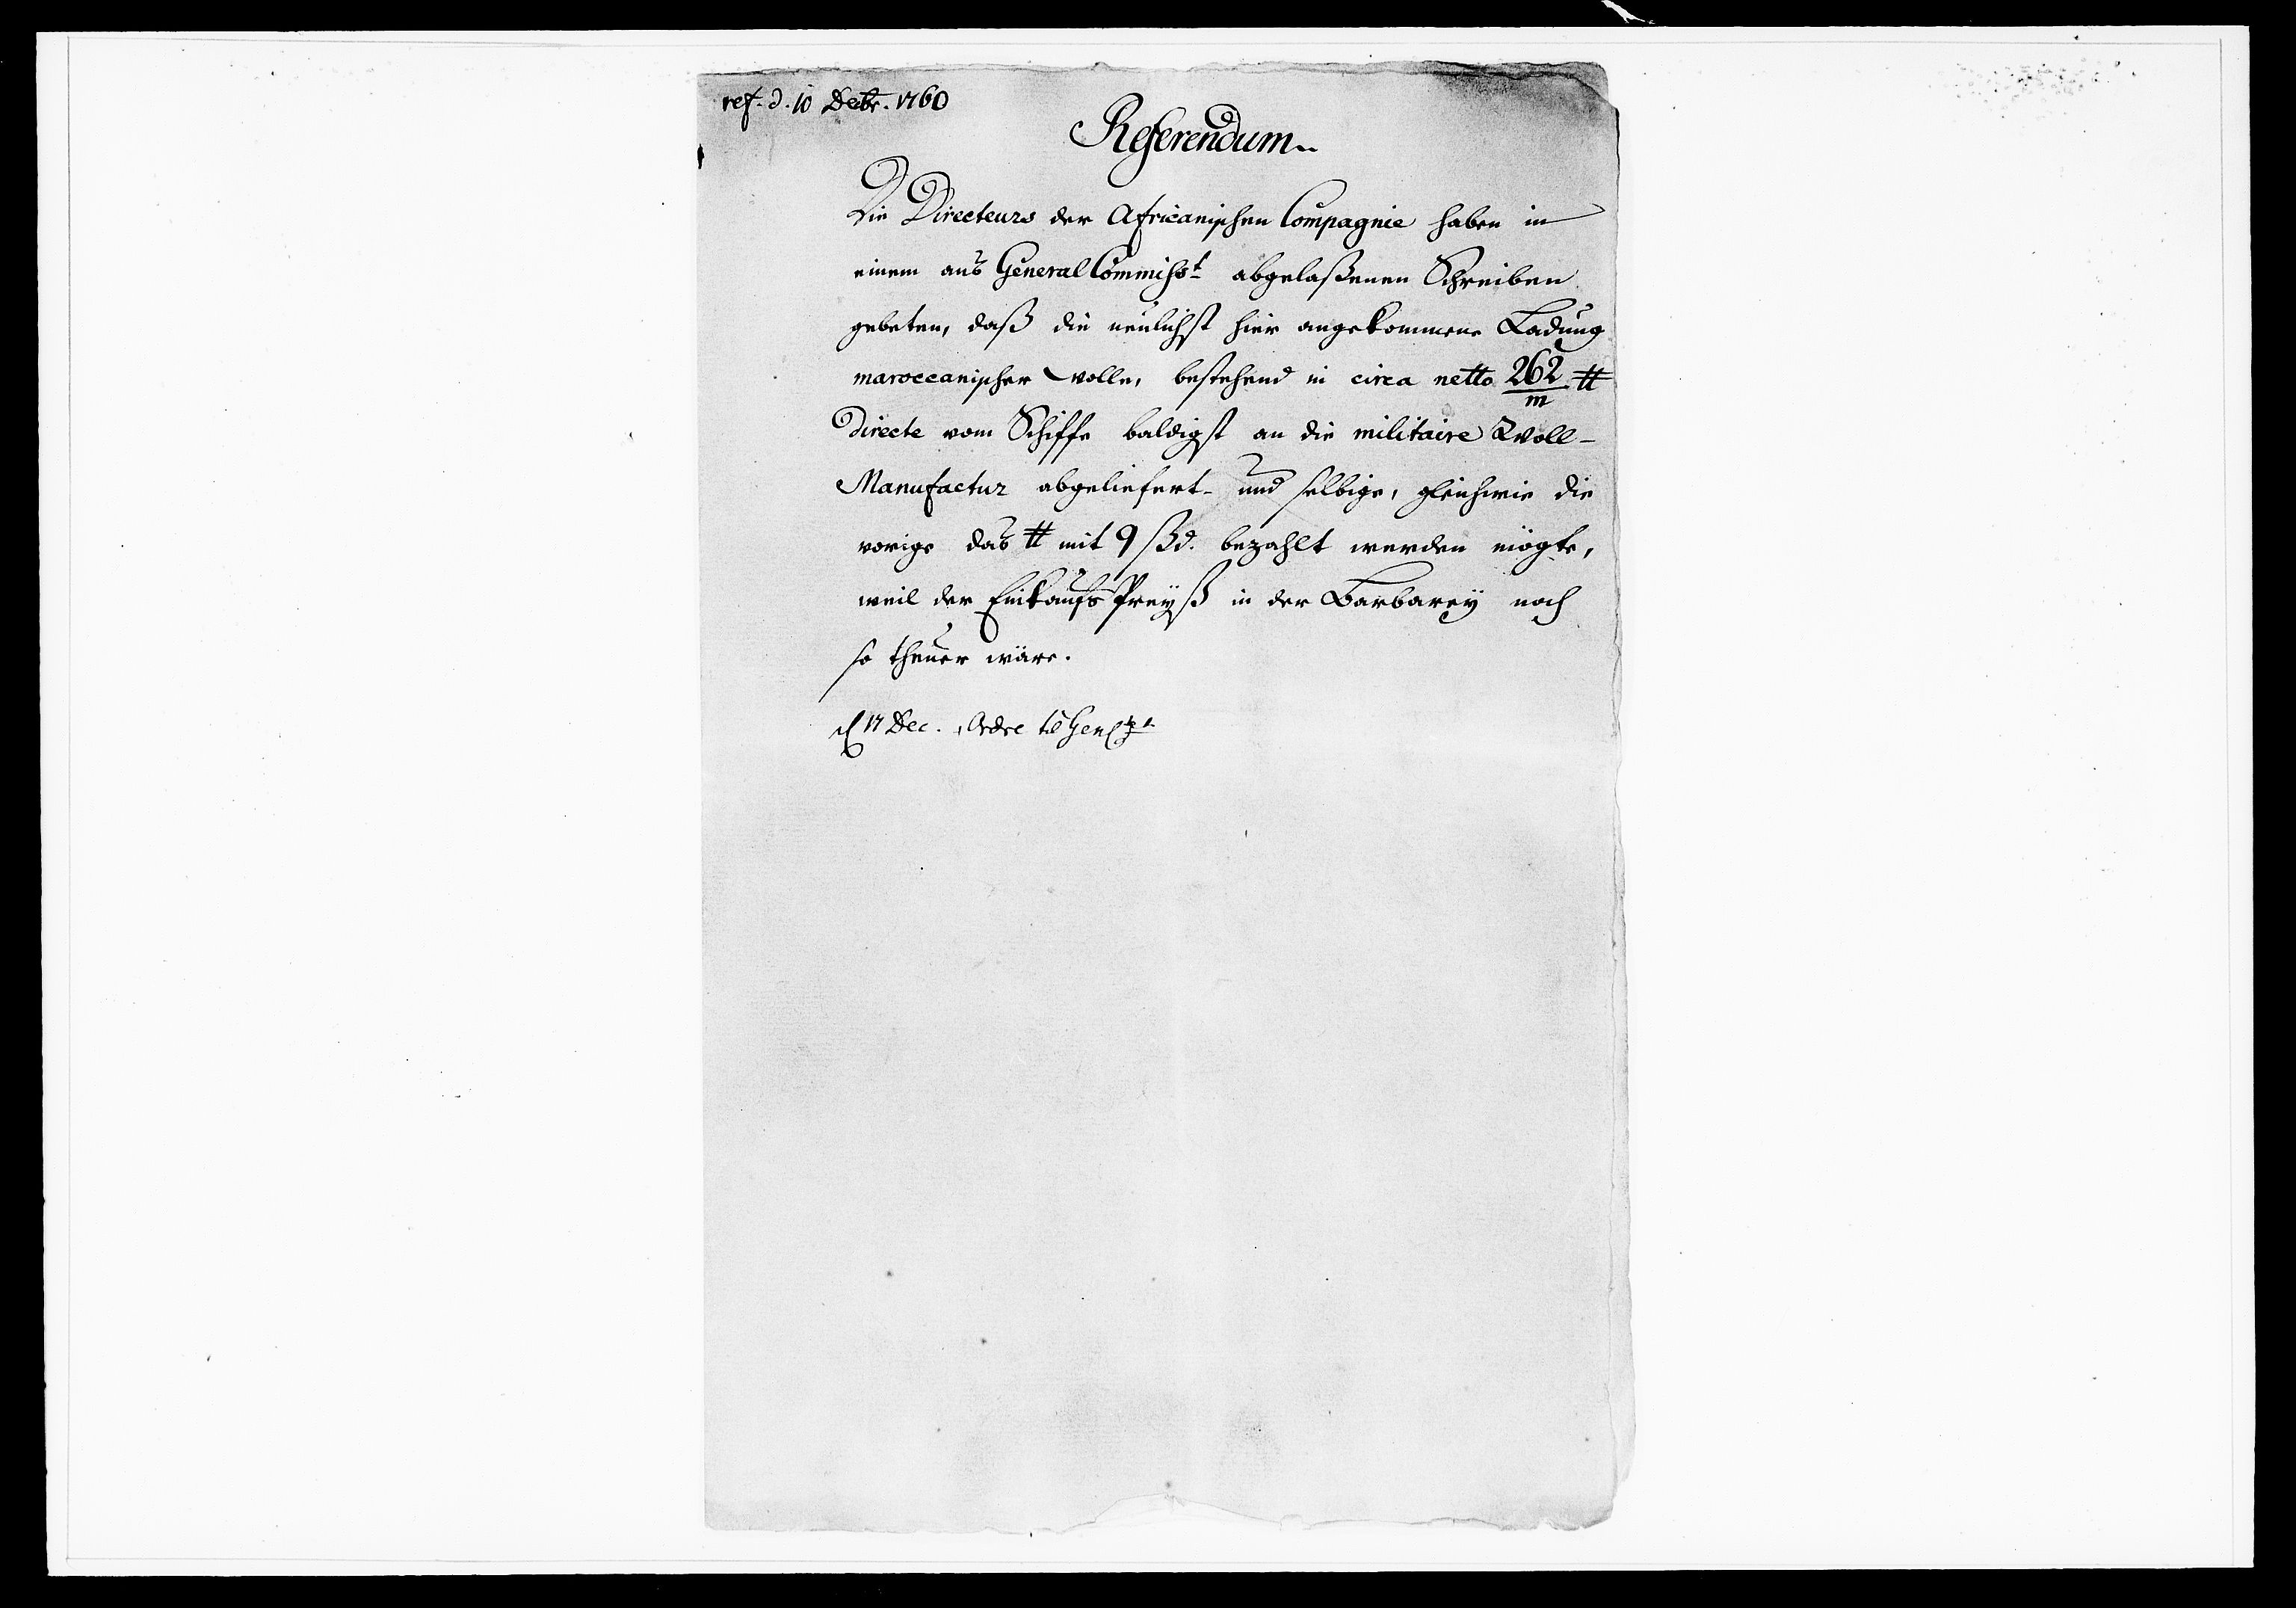 ref. d. 10 Decbr. 1760
Referendum.
Die Directeurs der Africanischen Compagnie haben in
einem ans General Commiss:t abgelaßenen Schreiben
gebeten, daß die neulichst hier angekommene Ladung
maroccanischer Wolle, bestehend in circa netto 262/m ℔
directe vom Schiffe baldigst an die militaire Woll-
Manufactur abgeliefert- und selbige, gleichwie die
vorige das ℔ mit 9 ßd. bezahlt werden mögte,
weil der Einkaufs Preyß in der Barbarey noch
so theuer wäre.
d 17 Dec. Ordre til